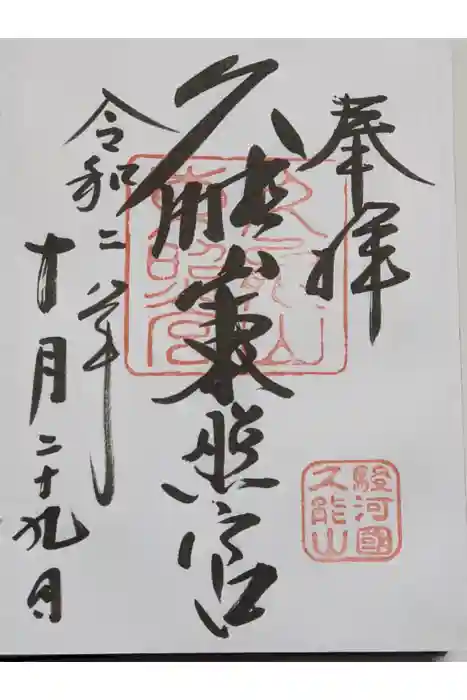 奉拝
久能山東照宮
久能山
東照宮
令和二年
十月二十九日
駿河國
久能山